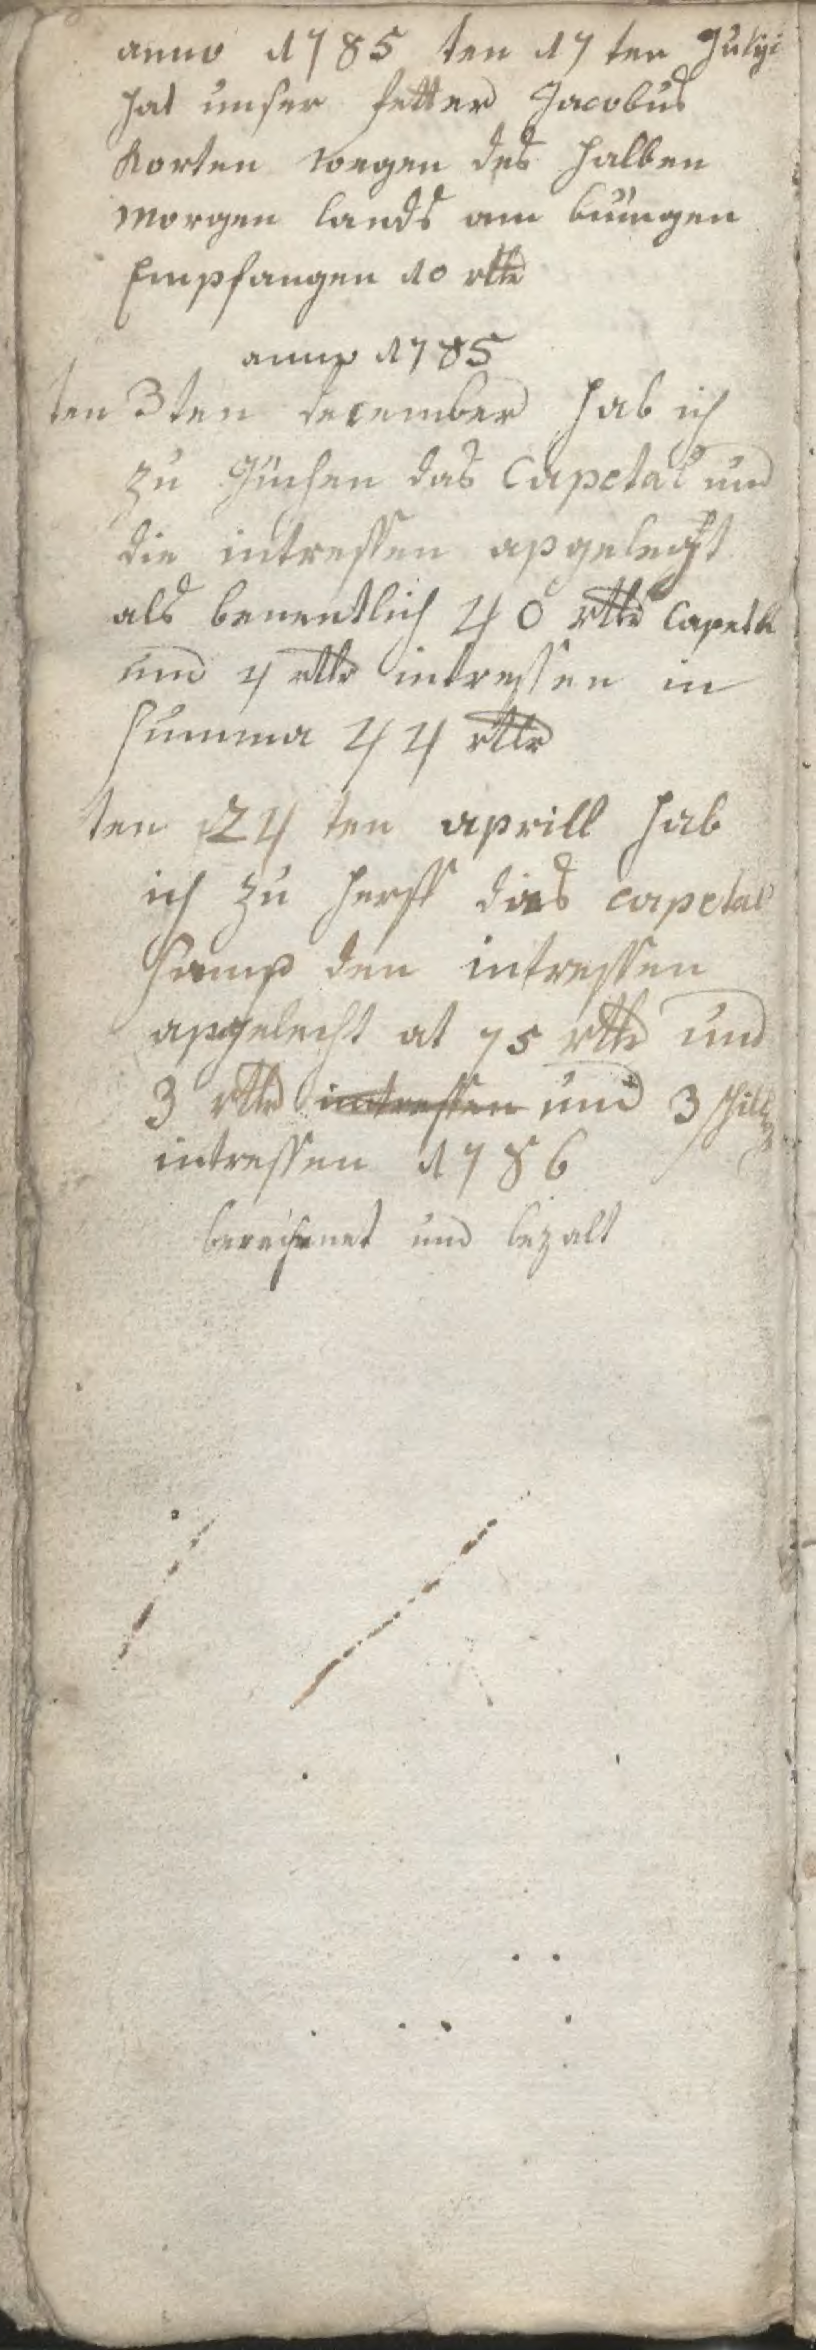 anno 1785 ten 17 ten Julyi
hat unser fetter Jacobus
Korten wegen des halben
morgen lands am
Empfangen 10 rtlr
anno 1785
ten 3ten december hab ich
zu Güchen das Capetal und
die intressen apgelecht
als benentlich 40 rtlr Capetl
und 4 rtlr intressen in
summa 44 rtlr
ten 24 ten aprill hab
ich zu das capetal
samp den intressen
apgelecht at 75 rtlr und
3 rtlr intressen und 3 schill
intressen 1786
berechenet und bezalt